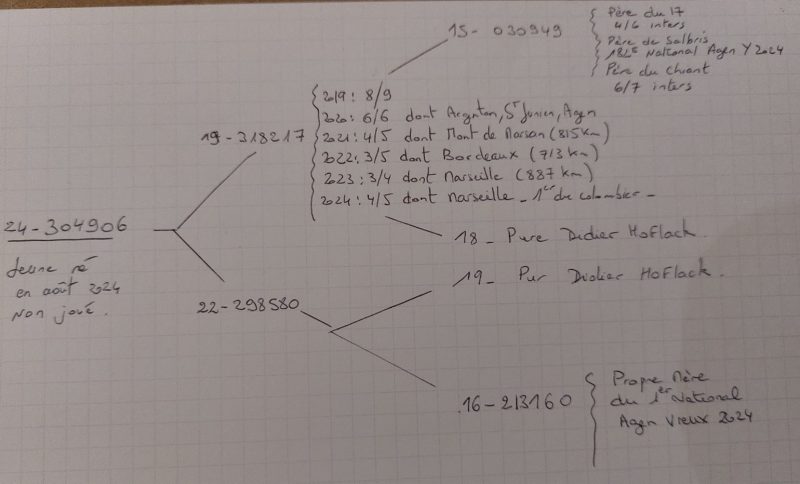 15 - 030949
Père du 17
4/6 inters
Père de Salbris
182e National Agen Y 2024
Père du Chiant
6/7 inters
19 - 318217
2019 : 8/9
2020 : 6/6 dont Argenton, St Junien, Agen
2021 : 4/5 dont Mont de Marsan (815 km)
2022 : 3/5 dont Bordeaux (713 km)
2023 : 3/4 dont Marseille (887 km)
2024 : 4/5 dont Marseille - 1er du colombier -
24 - 304906
Jeune né
en août 2024
Non joué.
18 - Pure Didier Hoflack.
19 - Pur Didier Hoflack.
22 - 298580
16 - 213160
Propre Mère
du 1er National
Agen Vieux 2024